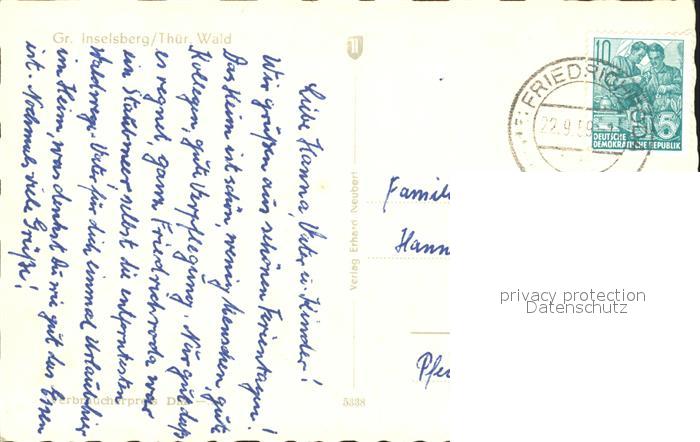 Gr. Inselsberg/Thür. Wald
Liebe Hanna, Vater u. Kinder!
Wir grüßen aus schönen Ferientagen!
Das Heim ist schön, wenig Menschen, gute
Kollegen, gute Verpflegung. Nur gut daß
es regnet, ganz Friedrichroda war
ein Staubmeer selbst die entferntesten
Waldwege. Vater, für dich einmal Urlaub hier
im Heim, was denkst Du wie gut das Essen
ist. Nochmals viele Grüße!
Verbraucherpreis
Verlag Erhard Neubert
5338
FRIEDRIC
22.9.59
10
5
DEUTSCHE
DEMOKRATISCHE REPUBLIK
Famili
Hann
Pfe
privacy protection
Datenschutz